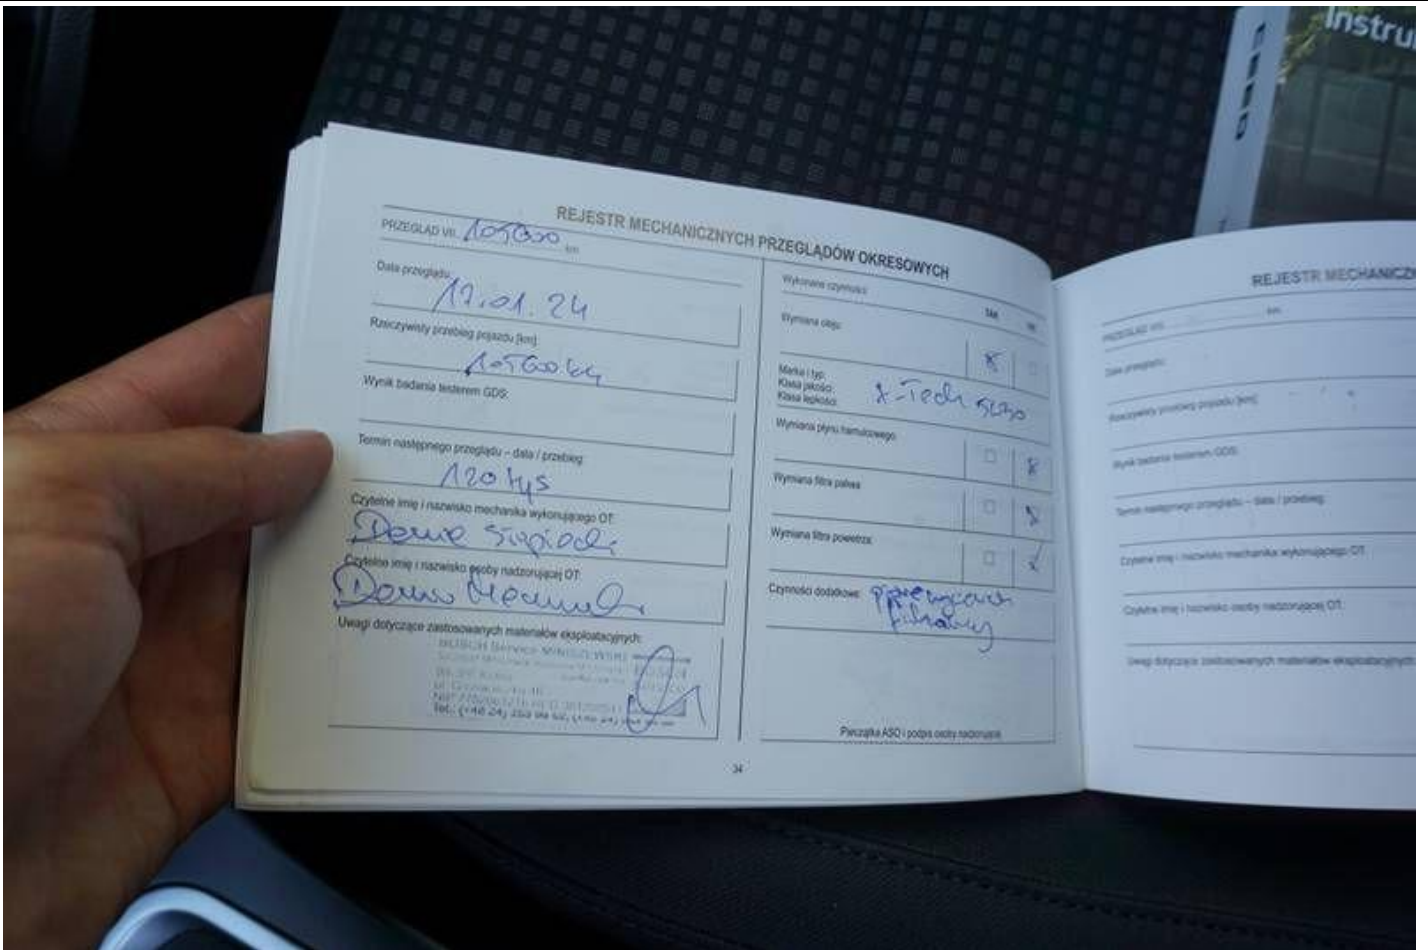 Instru
CEED
REJESTR MECHANICZNYCH PRZEGLĄDÓW OKRESOWYCH
PRZEGLĄD VII. km
Data przeglądu:
.01.24
Rzeczywisty przebieg pojazdu [km]:
Wynik badania testerem GDS:
Termin następnego przeglądu – data / przebieg:
120 tyś
Czytelne imię i nazwisko mechanika wykonującego OT:
Czytelne imię i nazwisko osoby nadzorującej OT:
Uwagi dotyczące zastosowanych materiałów eksploatacyjnych:
BOSCH Service
Wykonane czynności:
TAK NIE
Wymiana oleju:
Marka i typ:
Klasa jakości:
Klasa lepkości:
X-Tech 5W30
Wymiana płynu hamulcowego:
Wymiana filtra paliwa:
Wymiana filtra powietrza:
Czynności dodatkowe:
Pieczątka ASO i podpis osoby nadzorującej
34
REJESTR MECHANICZ
PRZEGLĄD VIII. km
Data przeglądu:
Rzeczywisty przebieg pojazdu [km]:
Wynik badania testerem GDS:
Termin następnego przeglądu – data / przebieg:
Czytelne imię i nazwisko mechanika wykonującego OT:
Czytelne imię i nazwisko osoby nadzorującej OT:
Uwagi dotyczące zastosowanych materiałów eksploatacyjnych: